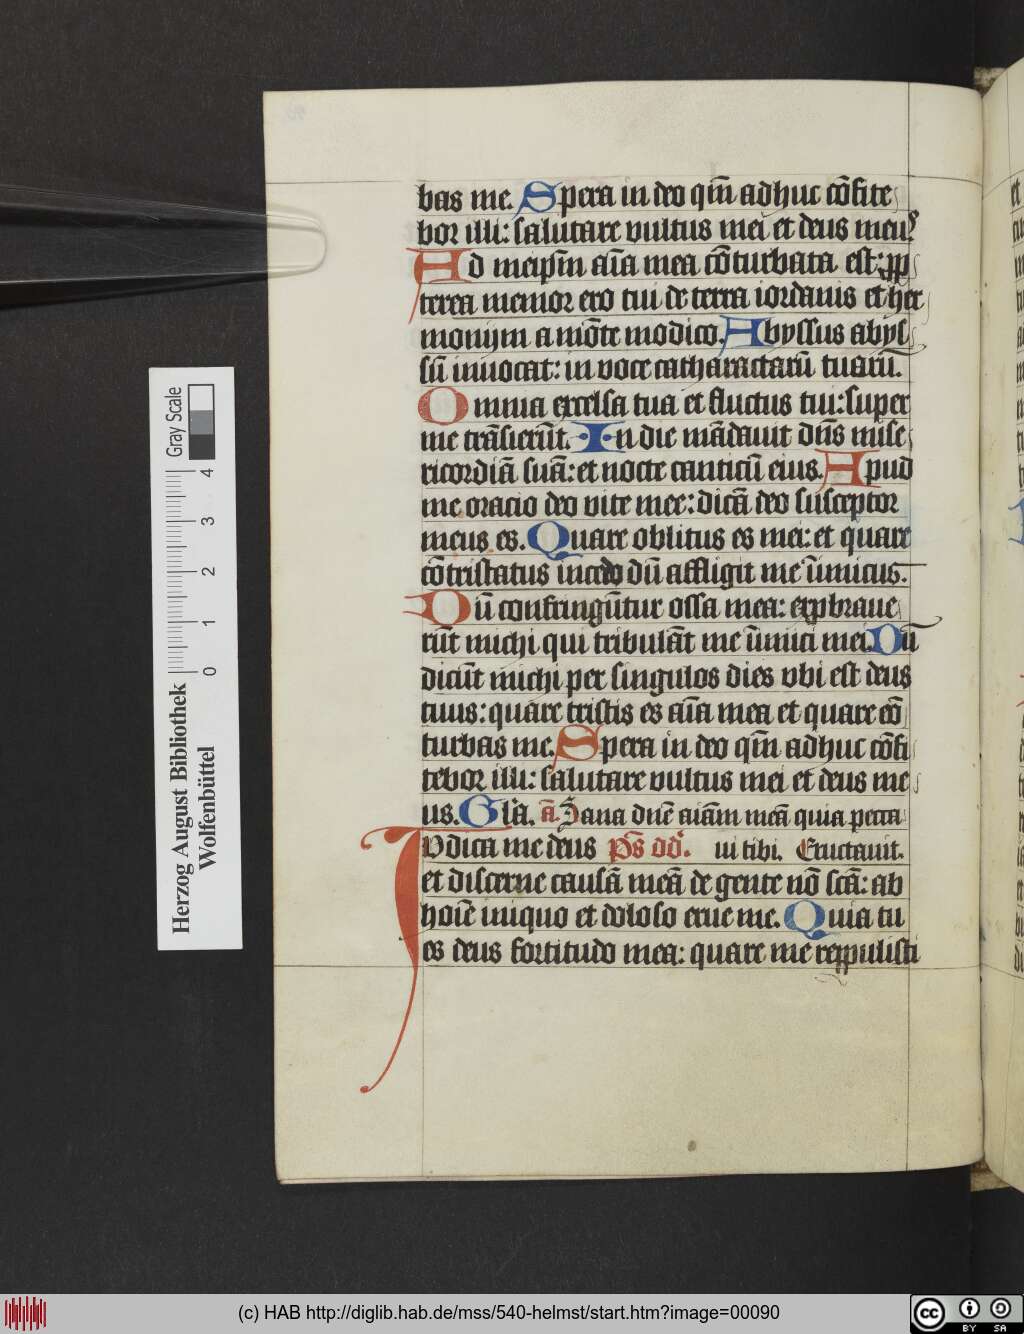 bas me. Spera in deo qm̄ adhuc cōfite
bor illi: salutare vultus mei et deus meuˢ
Ad meipm̄ aīa mea cōturbata est: pp
terea memor ero tui de terra iordanis et her
monijm a mōte modico. Abyssus abys
sū inuocat: in voce catharactarū tuarū.
Omnia excelsa tua et fluctus tui: super
me trāsierūt. In die mādauit dn̄s mise
ricordiā suā: et nocte canticū eius. Apud
me oracio deo vite mee: dicā deo susceptor
meus es. Quare oblitus es mei: et quare
cōtristatus incedo dū affligit me īimicus.
Dū confringūtur ossa mea: expbraue
rūt michi qui tribulāt me īimici mei. Dū
dicūt michi per singulos dies vbi est deus
tuus: quare tristis es aīa mea et quare cō
turbas me. Spera in deo qm̄ adhuc cōfi
tebor illi: salutare vultus mei et deus me
us. Gl'a. ā. Sana dn̄e aīam meā quia pecca
Iudica me deus Ps̄ dd. ui tibi. Eructauit.
et discerne causā meā de gente nō scā: ab
hoīe iniquo et doloso erue me. Quia tu
es deus fortitudo mea: quare me reppulisti
Herzog August Bibliothek
Wolfenbüttel
Gray Scale
0 1 2 3 4
(c) HAB http://diglib.hab.de/mss/540-helmst/start.htm?image=00090
cc BY SA